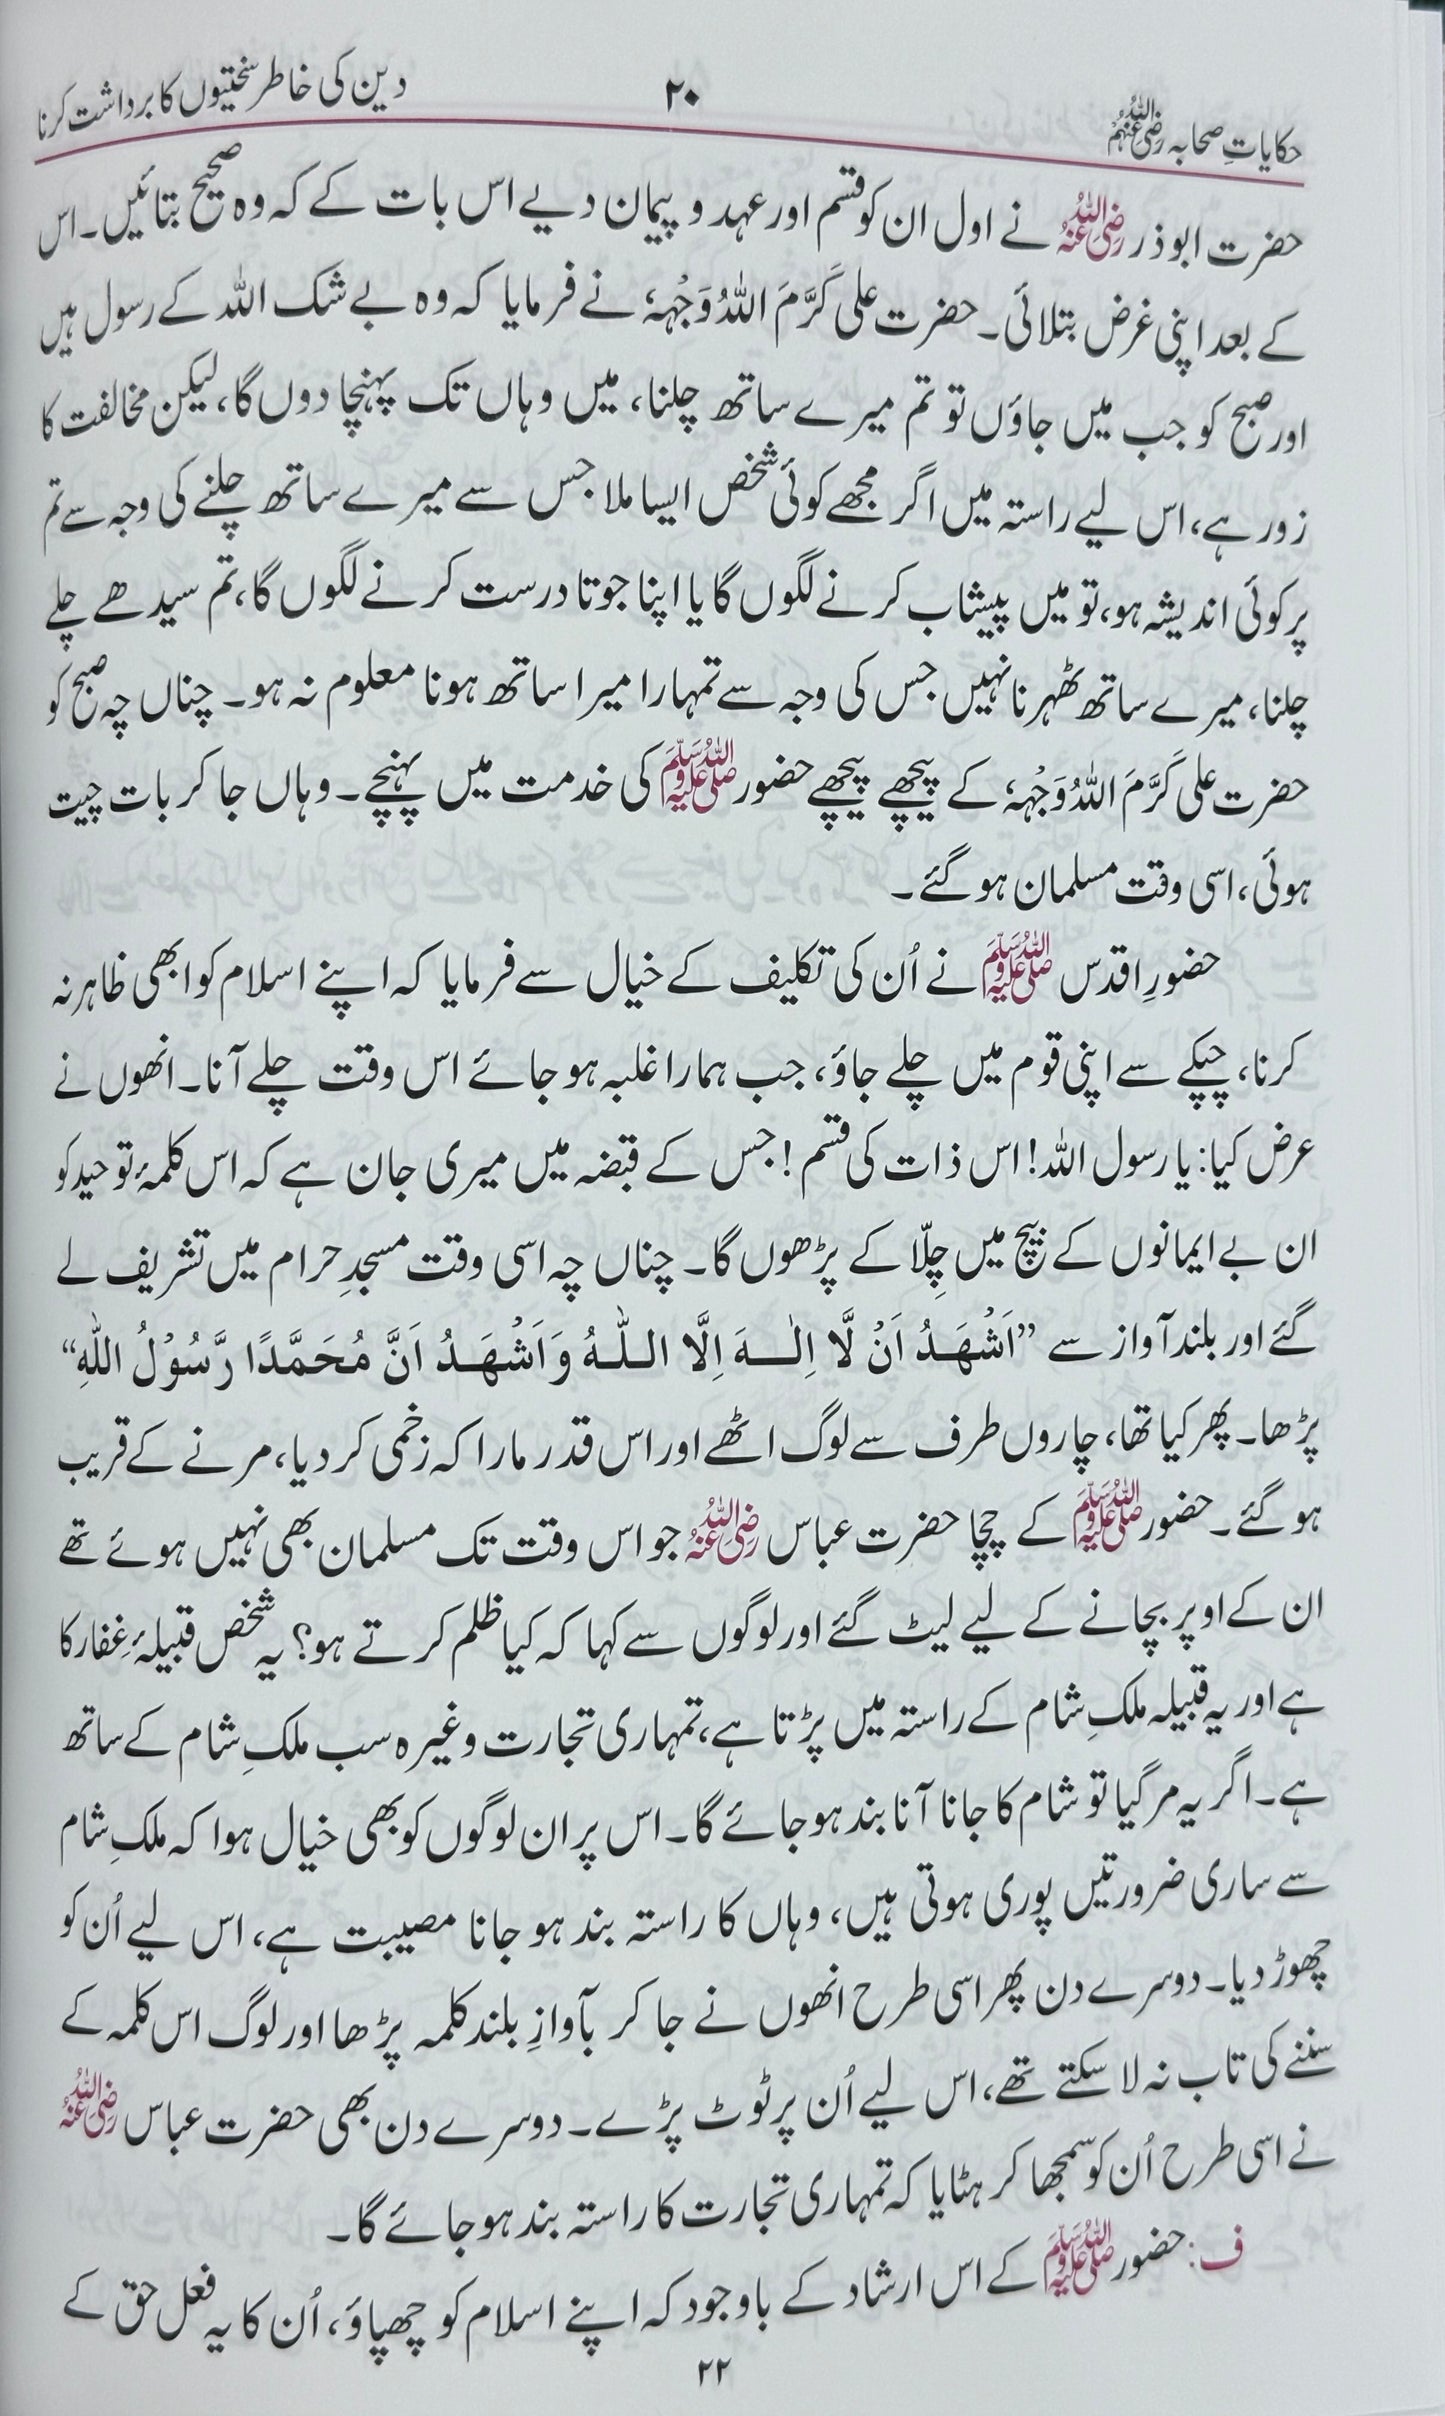 حکایاتِ صحابہ رضی اللہ عنہم ۲۰ دین کی خاطر سختیوں کا برداشت کرنا
حضرت ابوذر رضی اللہ عنہ نے اول ان کو قسم اور عہد و پیمان دیے اس بات کے کہ وہ صحیح بتائیں۔ اس
کے بعد اپنی غرض بتلائی۔ حضرت علی کَرَّمَ اللہُ وَجْہَہٗ نے فرمایا کہ وہ بے شک اللہ کے رسول ہیں
اور صبح کو جب میں جاؤں تو تم میرے ساتھ چلنا، میں وہاں تک پہنچا دوں گا، لیکن مخالفت کا
زور ہے، اس لیے راستہ میں اگر مجھے کوئی شخص ایسا ملا جس سے میرے ساتھ چلنے کی وجہ سے تم
پر کوئی اندیشہ ہو، تو میں پیشاب کرنے لگوں گا یا اپنا جوتا درست کرنے لگوں گا، تم سیدھے چلے
چلنا، میرے ساتھ ٹھہرنا نہیں جس کی وجہ سے تمہارا میرا ساتھ ہونا معلوم نہ ہو۔ چناں چہ صبح کو
حضرت علی کَرَّمَ اللہُ وَجْہَہٗ کے پیچھے پیچھے حضور ﷺ کی خدمت میں پہنچے۔ وہاں جا کر بات چیت
ہوئی، اسی وقت مسلمان ہو گئے۔
حضورِ اقدس ﷺ نے اُن کی تکلیف کے خیال سے فرمایا کہ اپنے اسلام کو ابھی ظاہر نہ
کرنا، چپکے سے اپنی قوم میں چلے جاؤ، جب ہمارا غلبہ ہو جائے اس وقت چلے آنا۔ انھوں نے
عرض کیا: یا رسول اللہ! اس ذات کی قسم! جس کے قبضہ میں میری جان ہے کہ اس کلمۂ توحید کو
ان بے ایمانوں کے بیچ میں چِلّا کے پڑھوں گا۔ چناں چہ اسی وقت مسجدِ حرام میں تشریف لے
گئے اور بلند آواز سے ”اَشْهَدُ اَنْ لَّا اِلٰهَ اِلَّا اللّٰهُ وَاَشْهَدُ اَنَّ مُحَمَّدًا رَّسُوْلُ اللهِ“
پڑھا۔ پھر کیا تھا، چاروں طرف سے لوگ اٹھے اور اس قدر مارا کہ زخمی کر دیا، مرنے کے قریب
ہو گئے۔ حضور ﷺ کے چچا حضرت عباس رضی اللہ عنہ جو اس وقت تک مسلمان بھی نہیں ہوئے تھے
ان کے اوپر بچانے کے لیے لیٹ گئے اور لوگوں سے کہا کہ کیا ظلم کرتے ہو؟ یہ شخص قبیلۂ غِفار کا
ہے اور یہ قبیلہ ملکِ شام کے راستہ میں پڑتا ہے، تمہاری تجارت وغیرہ سب ملکِ شام کے ساتھ
ہے۔ اگر یہ مر گیا تو شام کا جانا آنا بند ہو جائے گا۔ اس پر ان لوگوں کو بھی خیال ہوا کہ ملکِ شام
سے ساری ضرورتیں پوری ہوتی ہیں، وہاں کا راستہ بند ہو جانا مصیبت ہے، اس لیے اُن کو
چھوڑ دیا۔ دوسرے دن پھر اسی طرح انھوں نے جا کر بآوازِ بلند کلمہ پڑھا اور لوگ اس کلمہ کے
سننے کی تاب نہ لا سکتے تھے، اس لیے اُن پر ٹوٹ پڑے۔ دوسرے دن بھی حضرت عباس رضی اللہ عنہ
نے اسی طرح اُن کو سمجھا کر ہٹایا کہ تمہاری تجارت کا راستہ بند ہو جائے گا۔
ف: حضور ﷺ کے اس ارشاد کے باوجود کہ اپنے اسلام کو چھپاؤ، اُن کا یہ فعل حق کے
۲۲